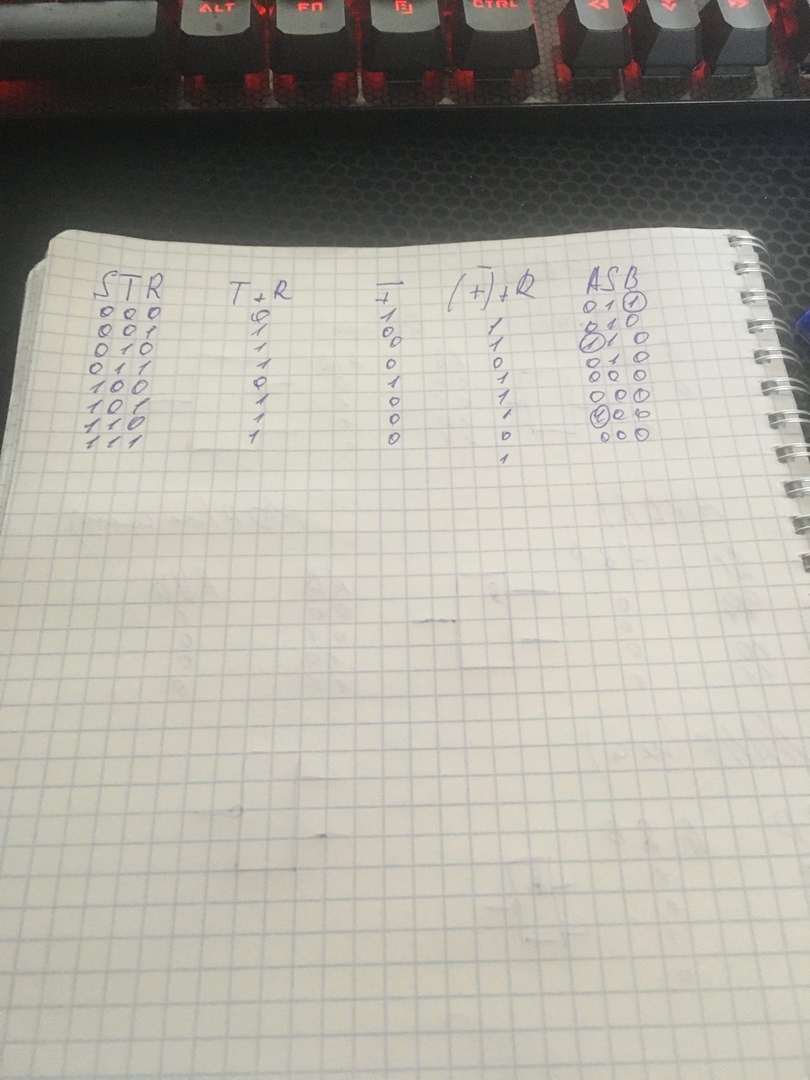 ALT Fn CTRL
S T R T + R + (+) + R A S B
0 0 0 0 1 1 0 1 1
0 0 1 1 0 1 0 1 0
0 1 0 1 0 0 1 1 0
0 1 1 1 0 1 0 1 0
1 0 0 0 1 1 0 0 0
1 0 1 1 0 1 0 0 0
1 1 0 1 0 0 1 0 0
1 1 1 1 0 1 0 0 0